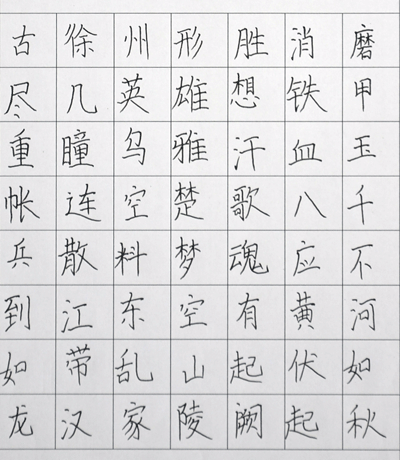 古徐州形胜消磨
尽几英雄想铁甲
重瞳乌雅汗血玉
帐连空楚歌八千
兵散料梦魂应不
到江东空有黄河
如带乱山起伏如
龙汉家陵阙起秋